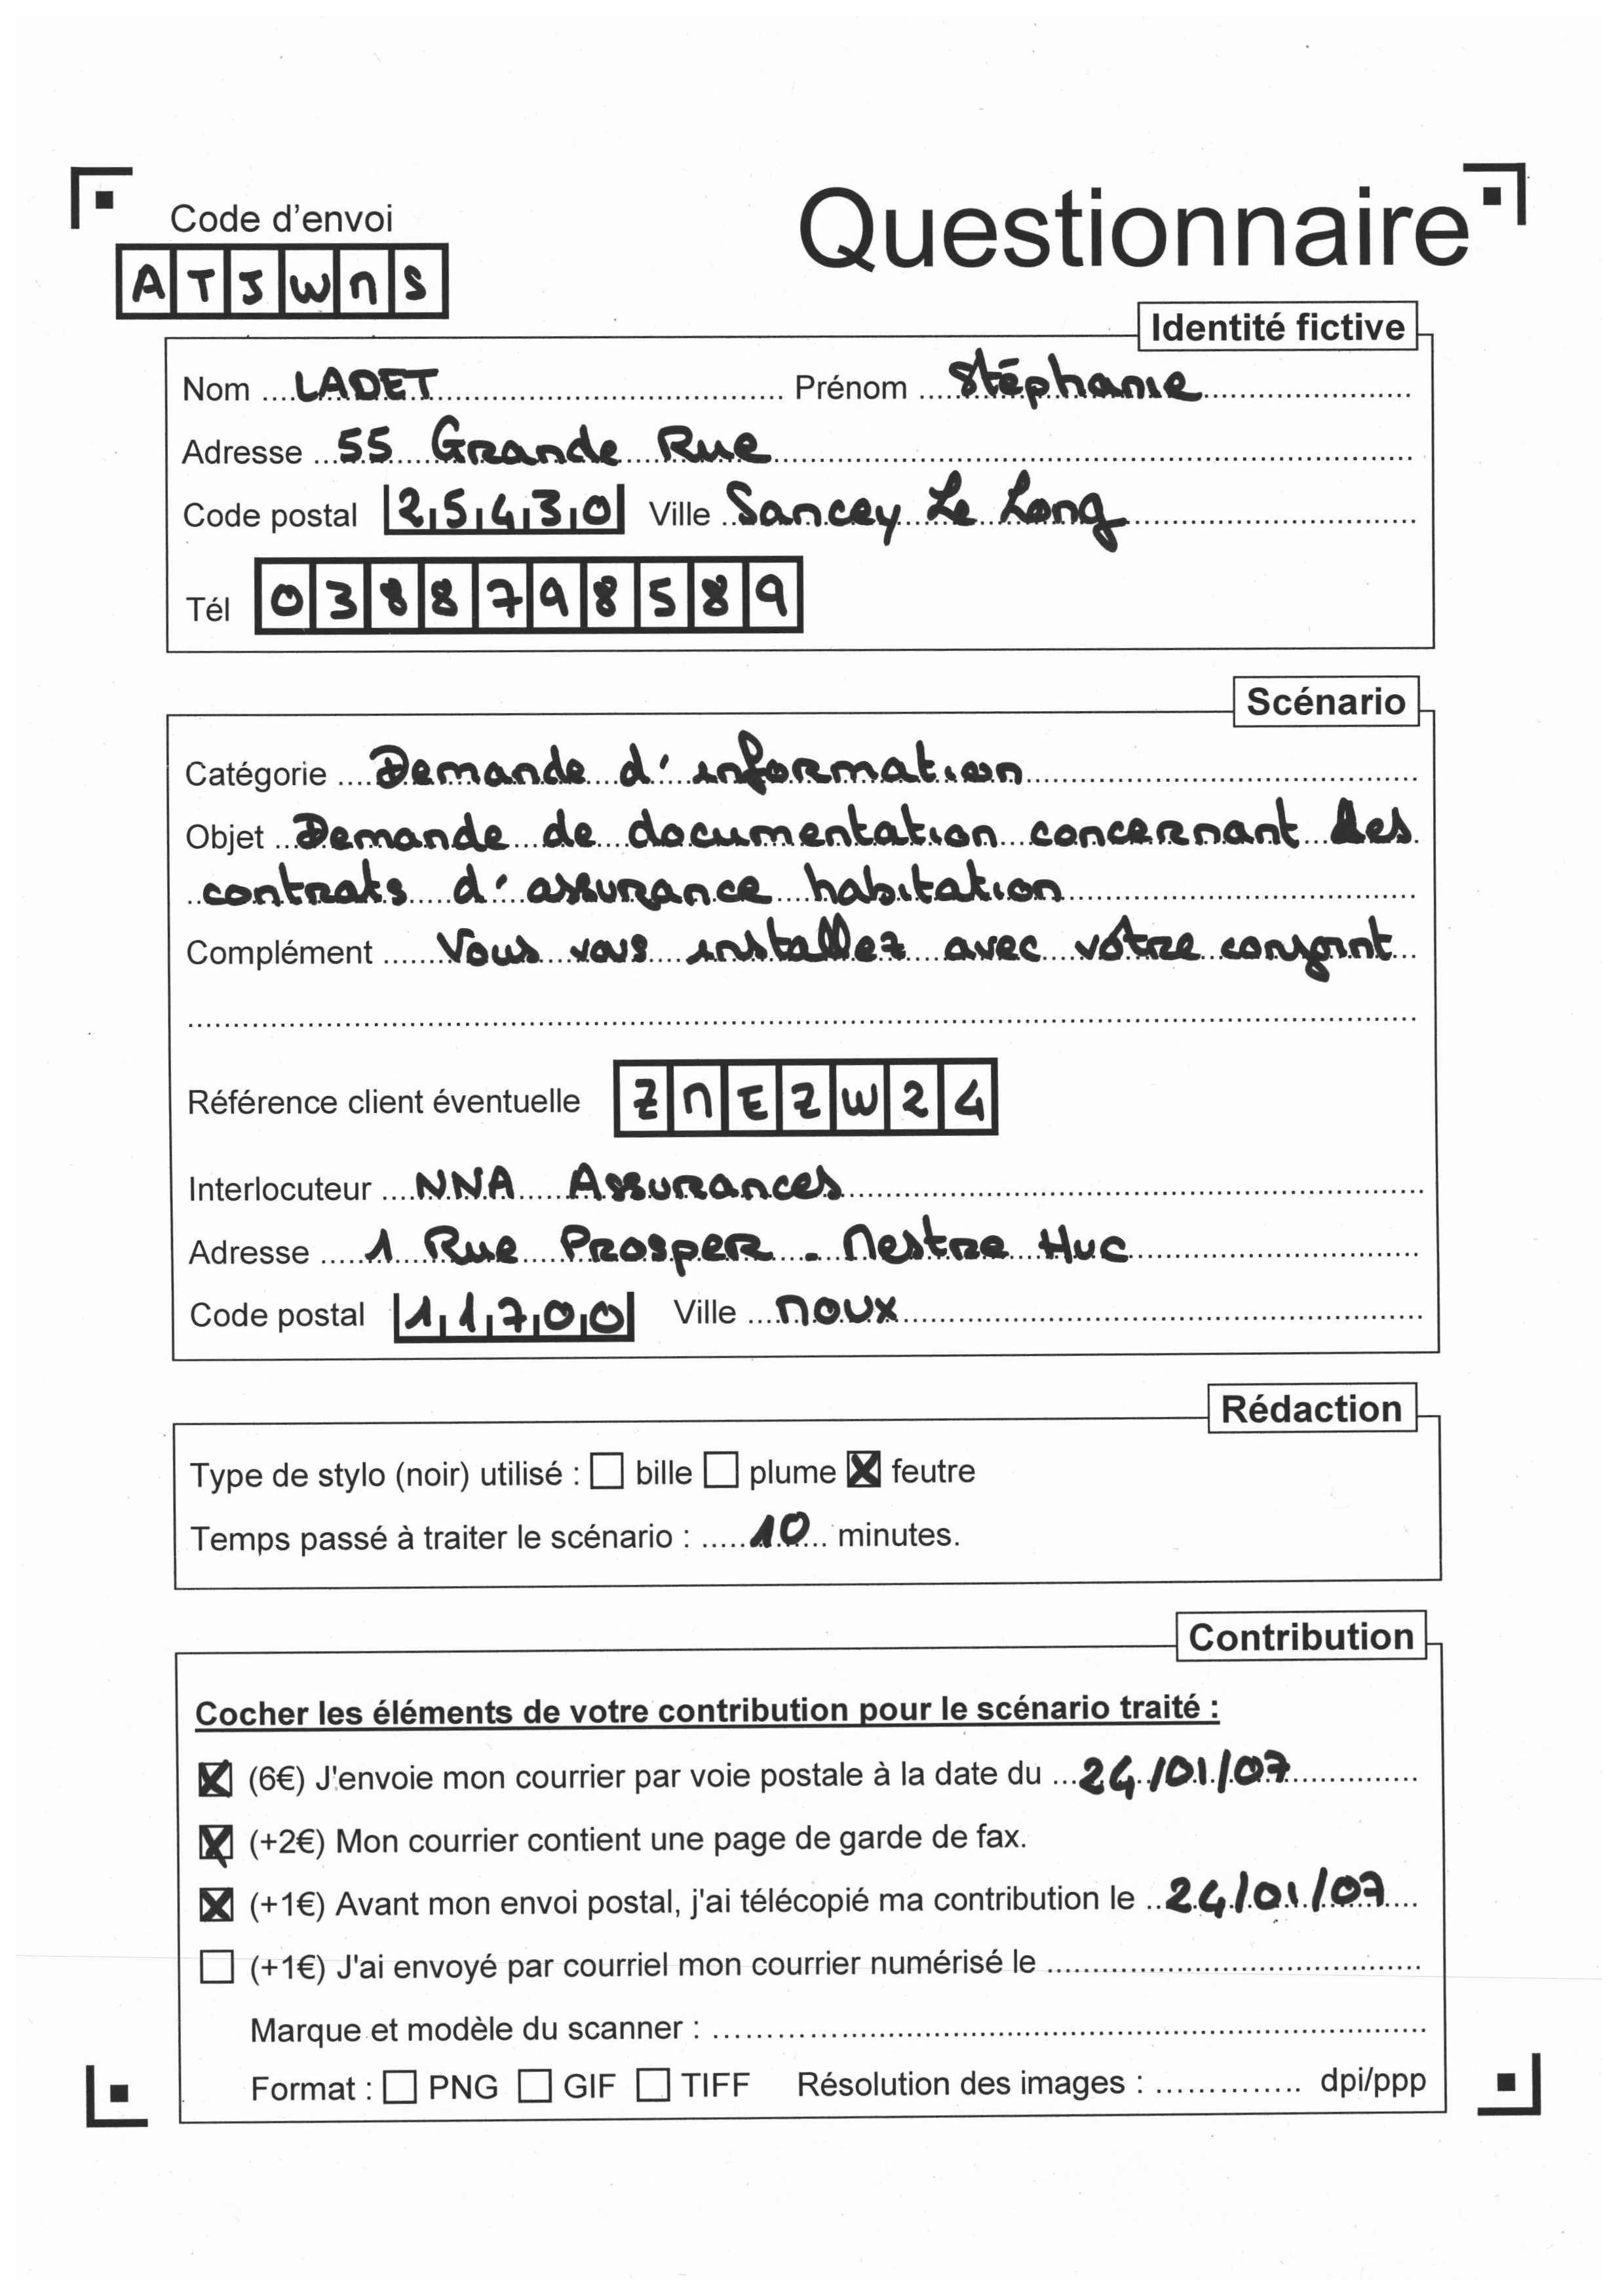 Code d'envoi
Questionnaire
ATJWNS
Identité fictive
Nom LADET Prénom Stéphanie
Adresse 55 Grande Rue
Code postal 25430 Ville Sancey Le Long
Tél 0388798589
Scénario
Catégorie Demande d'information
Objet Demande de documentation concernant les
contrats d'assurance habitation
Complément Vous vous installez avec votre conjoint
Référence client éventuelle ZNEZW24
Interlocuteur NNA Assurances
Adresse 1 Rue Prosper - Mestre Huc
Code postal 11700 Ville Moux
Rédaction
Type de stylo (noir) utilisé : ☐ bille ☐ plume ☒ feutre
Temps passé à traiter le scénario : 10 minutes.
Contribution
Cocher les éléments de votre contribution pour le scénario traité :
☒ (6€) J'envoie mon courrier par voie postale à la date du 24/01/07
☒ (+2€) Mon courrier contient une page de garde de fax.
☒ (+1€) Avant mon envoi postal, j'ai télécopié ma contribution le 24/01/07
☐ (+1€) J'ai envoyé par courriel mon courrier numérisé le
Marque et modèle du scanner :
Format : ☐ PNG ☐ GIF ☐ TIFF Résolution des images : dpi/ppp